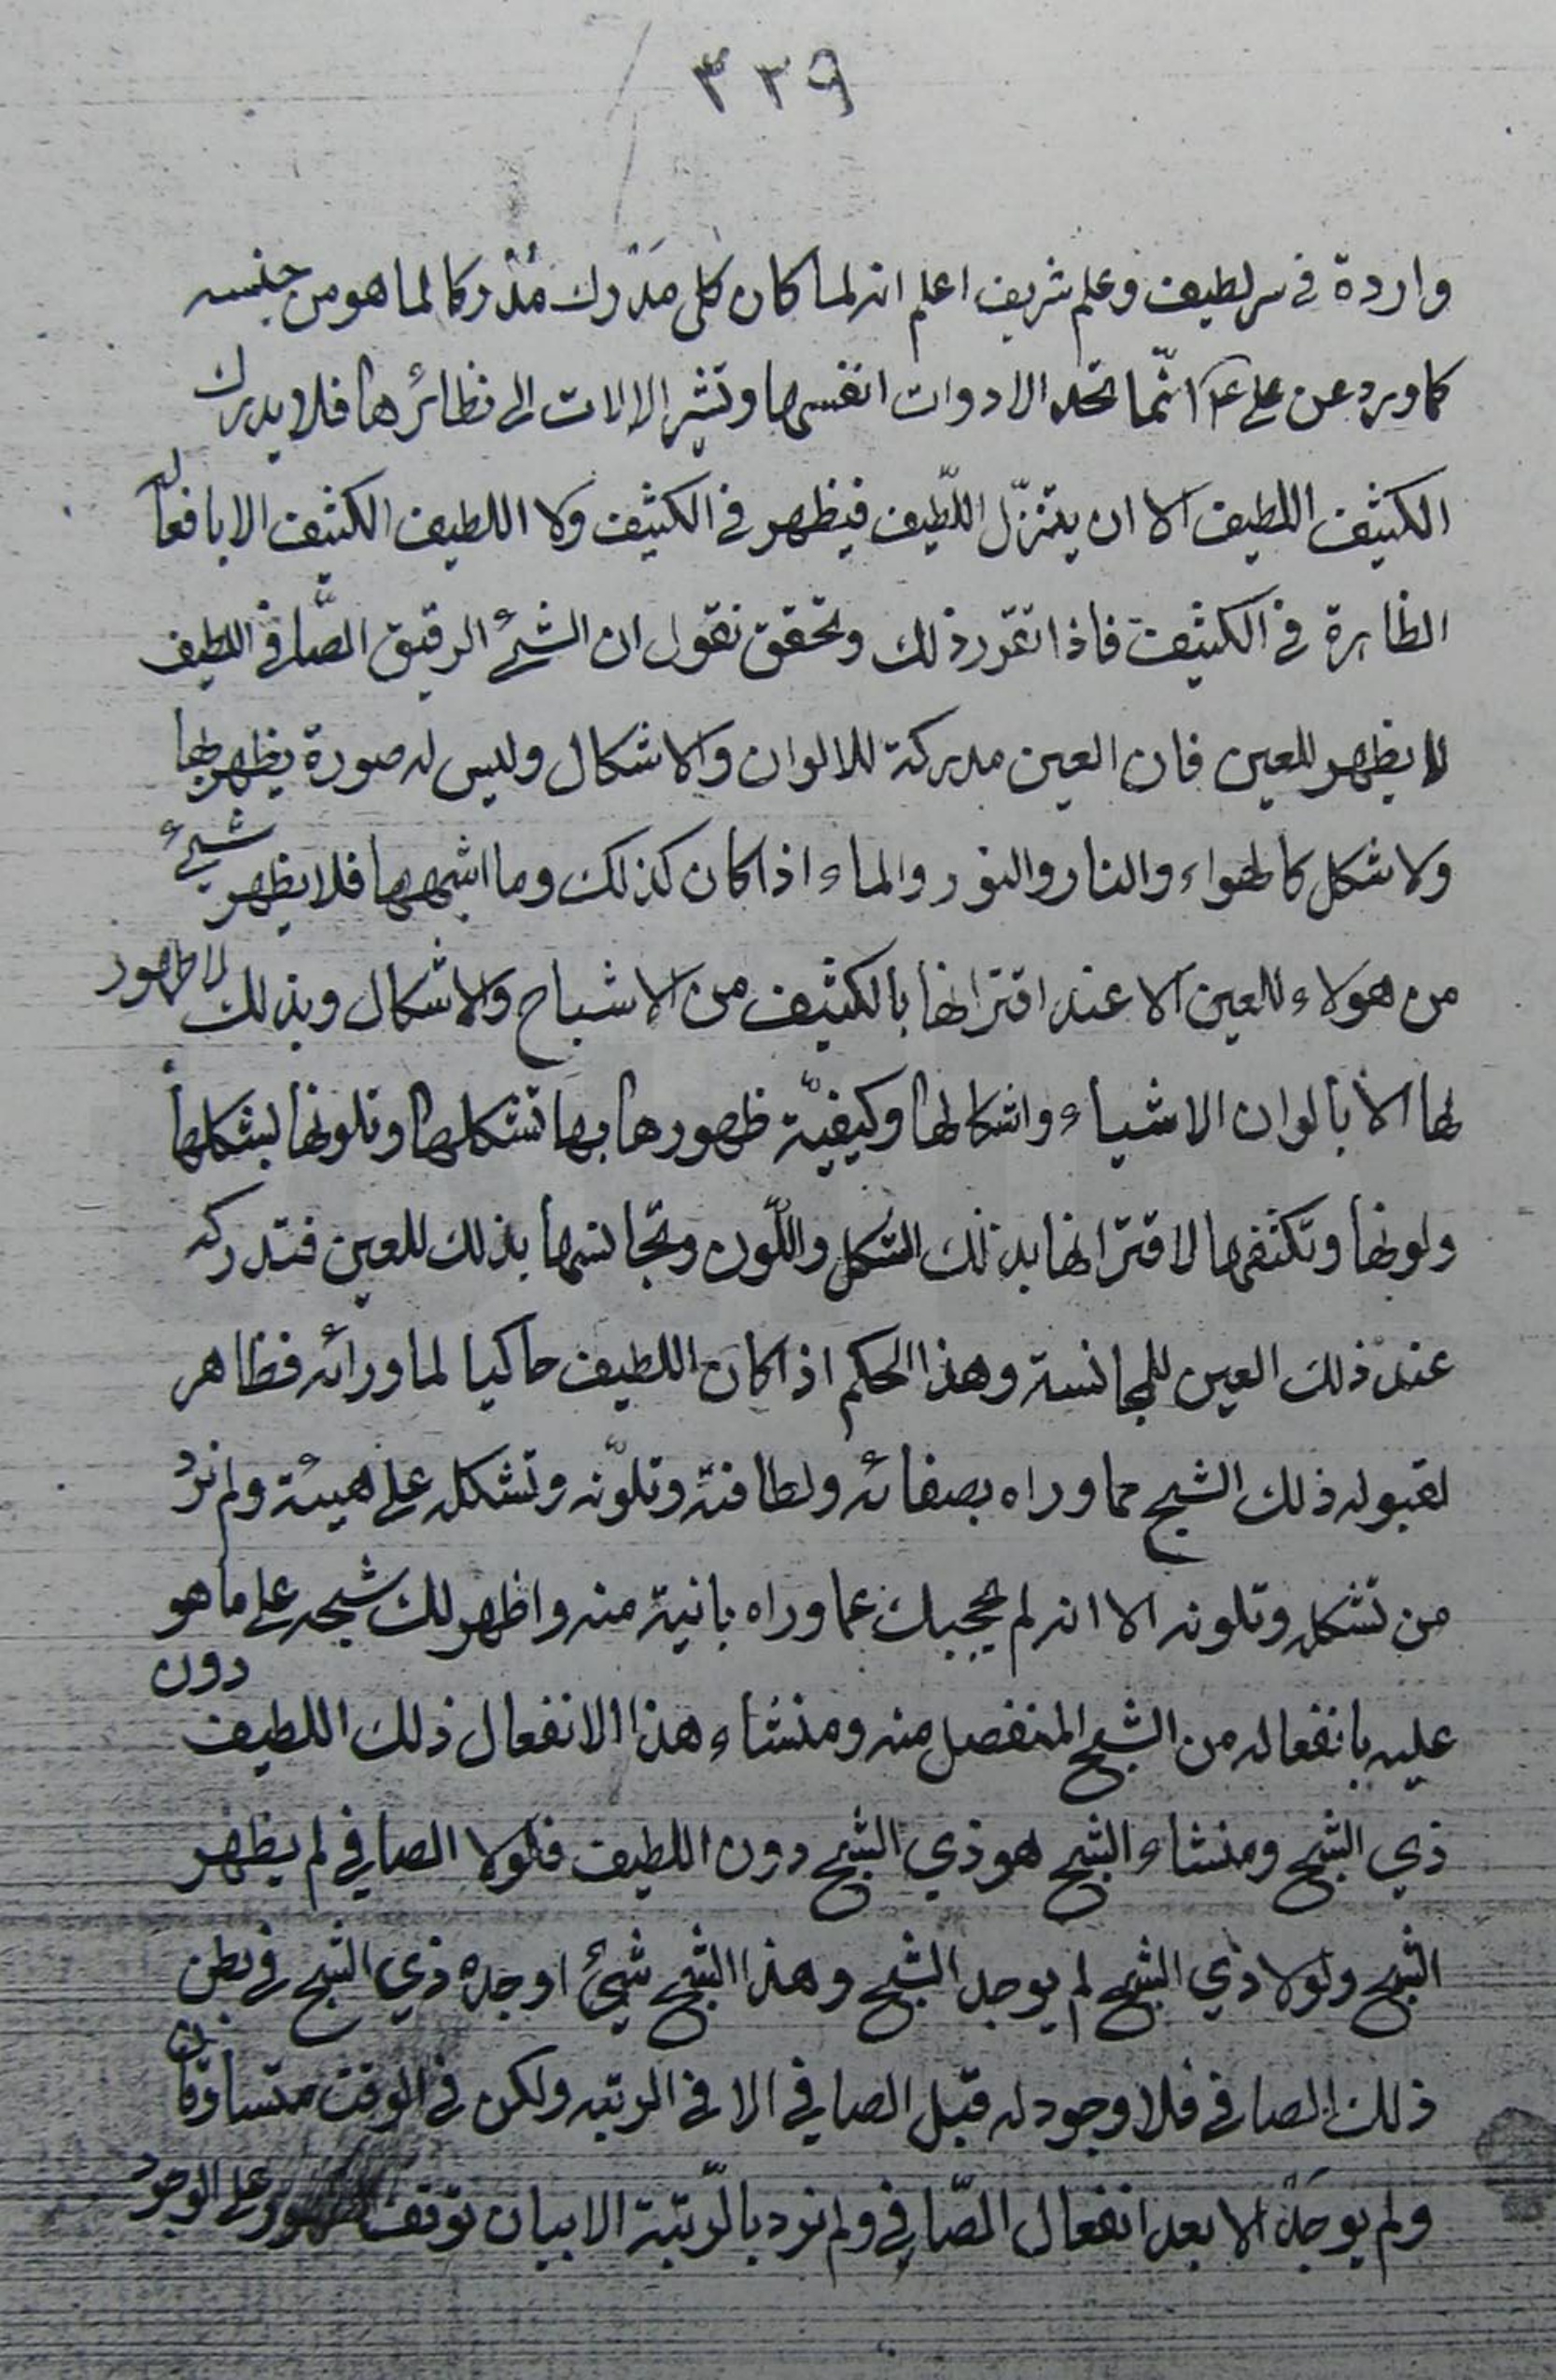 ٣٢٩
واردة في سر لطيف وعلم شريف اعلم انه لما كان كل مَدْرك مُدْركا لما هو من جنسه
كما ورد عن علي ع انّما تحد الادوات انفسها وتشير الالات الى نظائرها فلا يدرك
الكثيف اللطيف الا ان يتنزّل اللّطيف فيظهر في الكثيف ولا اللطيف الكثيف الا بافعاله
الظاهرة في الكثيف فاذا تقرر ذلك وتحقق نقول ان الشيء الرقيق الصّافي اللطيف
لا يظهر للعين فان العين مدركة للالوان والاشكال وليس له صورة يظهر بها
ولا شكل كالهواء والنار والنور والماء اذا كان كذلك وما اشبهها فلا يظهر شيء
من هولاء للعين الا عند اقترانها بالكثيف من الاشباح والاشكال وبذلك لا ظهور
لها الا بالوان الاشياء واشكالها وكيفيّة ظهورها بها تشكلها وتلونها بشكلها
ولونها وتكثفها لاقترانها بذلك الشكل واللّون وتجانسها بذلك للعين فتدركه
عند ذلك العين للمجانسة وهذا الحكم اذا كان اللطيف حاكيا لما ورائه فظاهر
لقبوله ذلك الشبح مما وراه بصفائه ولطافته وتلوّنه وتشكله على هيئة ولم نرد
من تشكله وتلونه الا انه لم يحجبك عما وراه بانية منه واظهر لك شبحه على ما هو
عليه بانفعاله من الشبح المنفصل منه ومنشاء هذا الانفعال ذلك اللطيف دون
ذي الشبح ومنشاء الشبح هو ذي الشبح دون اللطيف فلولا الصافي لم يظهر
الشبح ولولا ذي الشبح لم يوجد الشبح وهذا الشبح شيئ اوجده ذي الشبح في بطن
ذلك الصافي فلا وجود له قبل الصافي الا في الرتبه ولكن في الوقت متساوقان
ولم يوجد الا بعد انفعال الصّافي ولم نرد بالرّتبة الا بيان توقف الظهور على الوجود